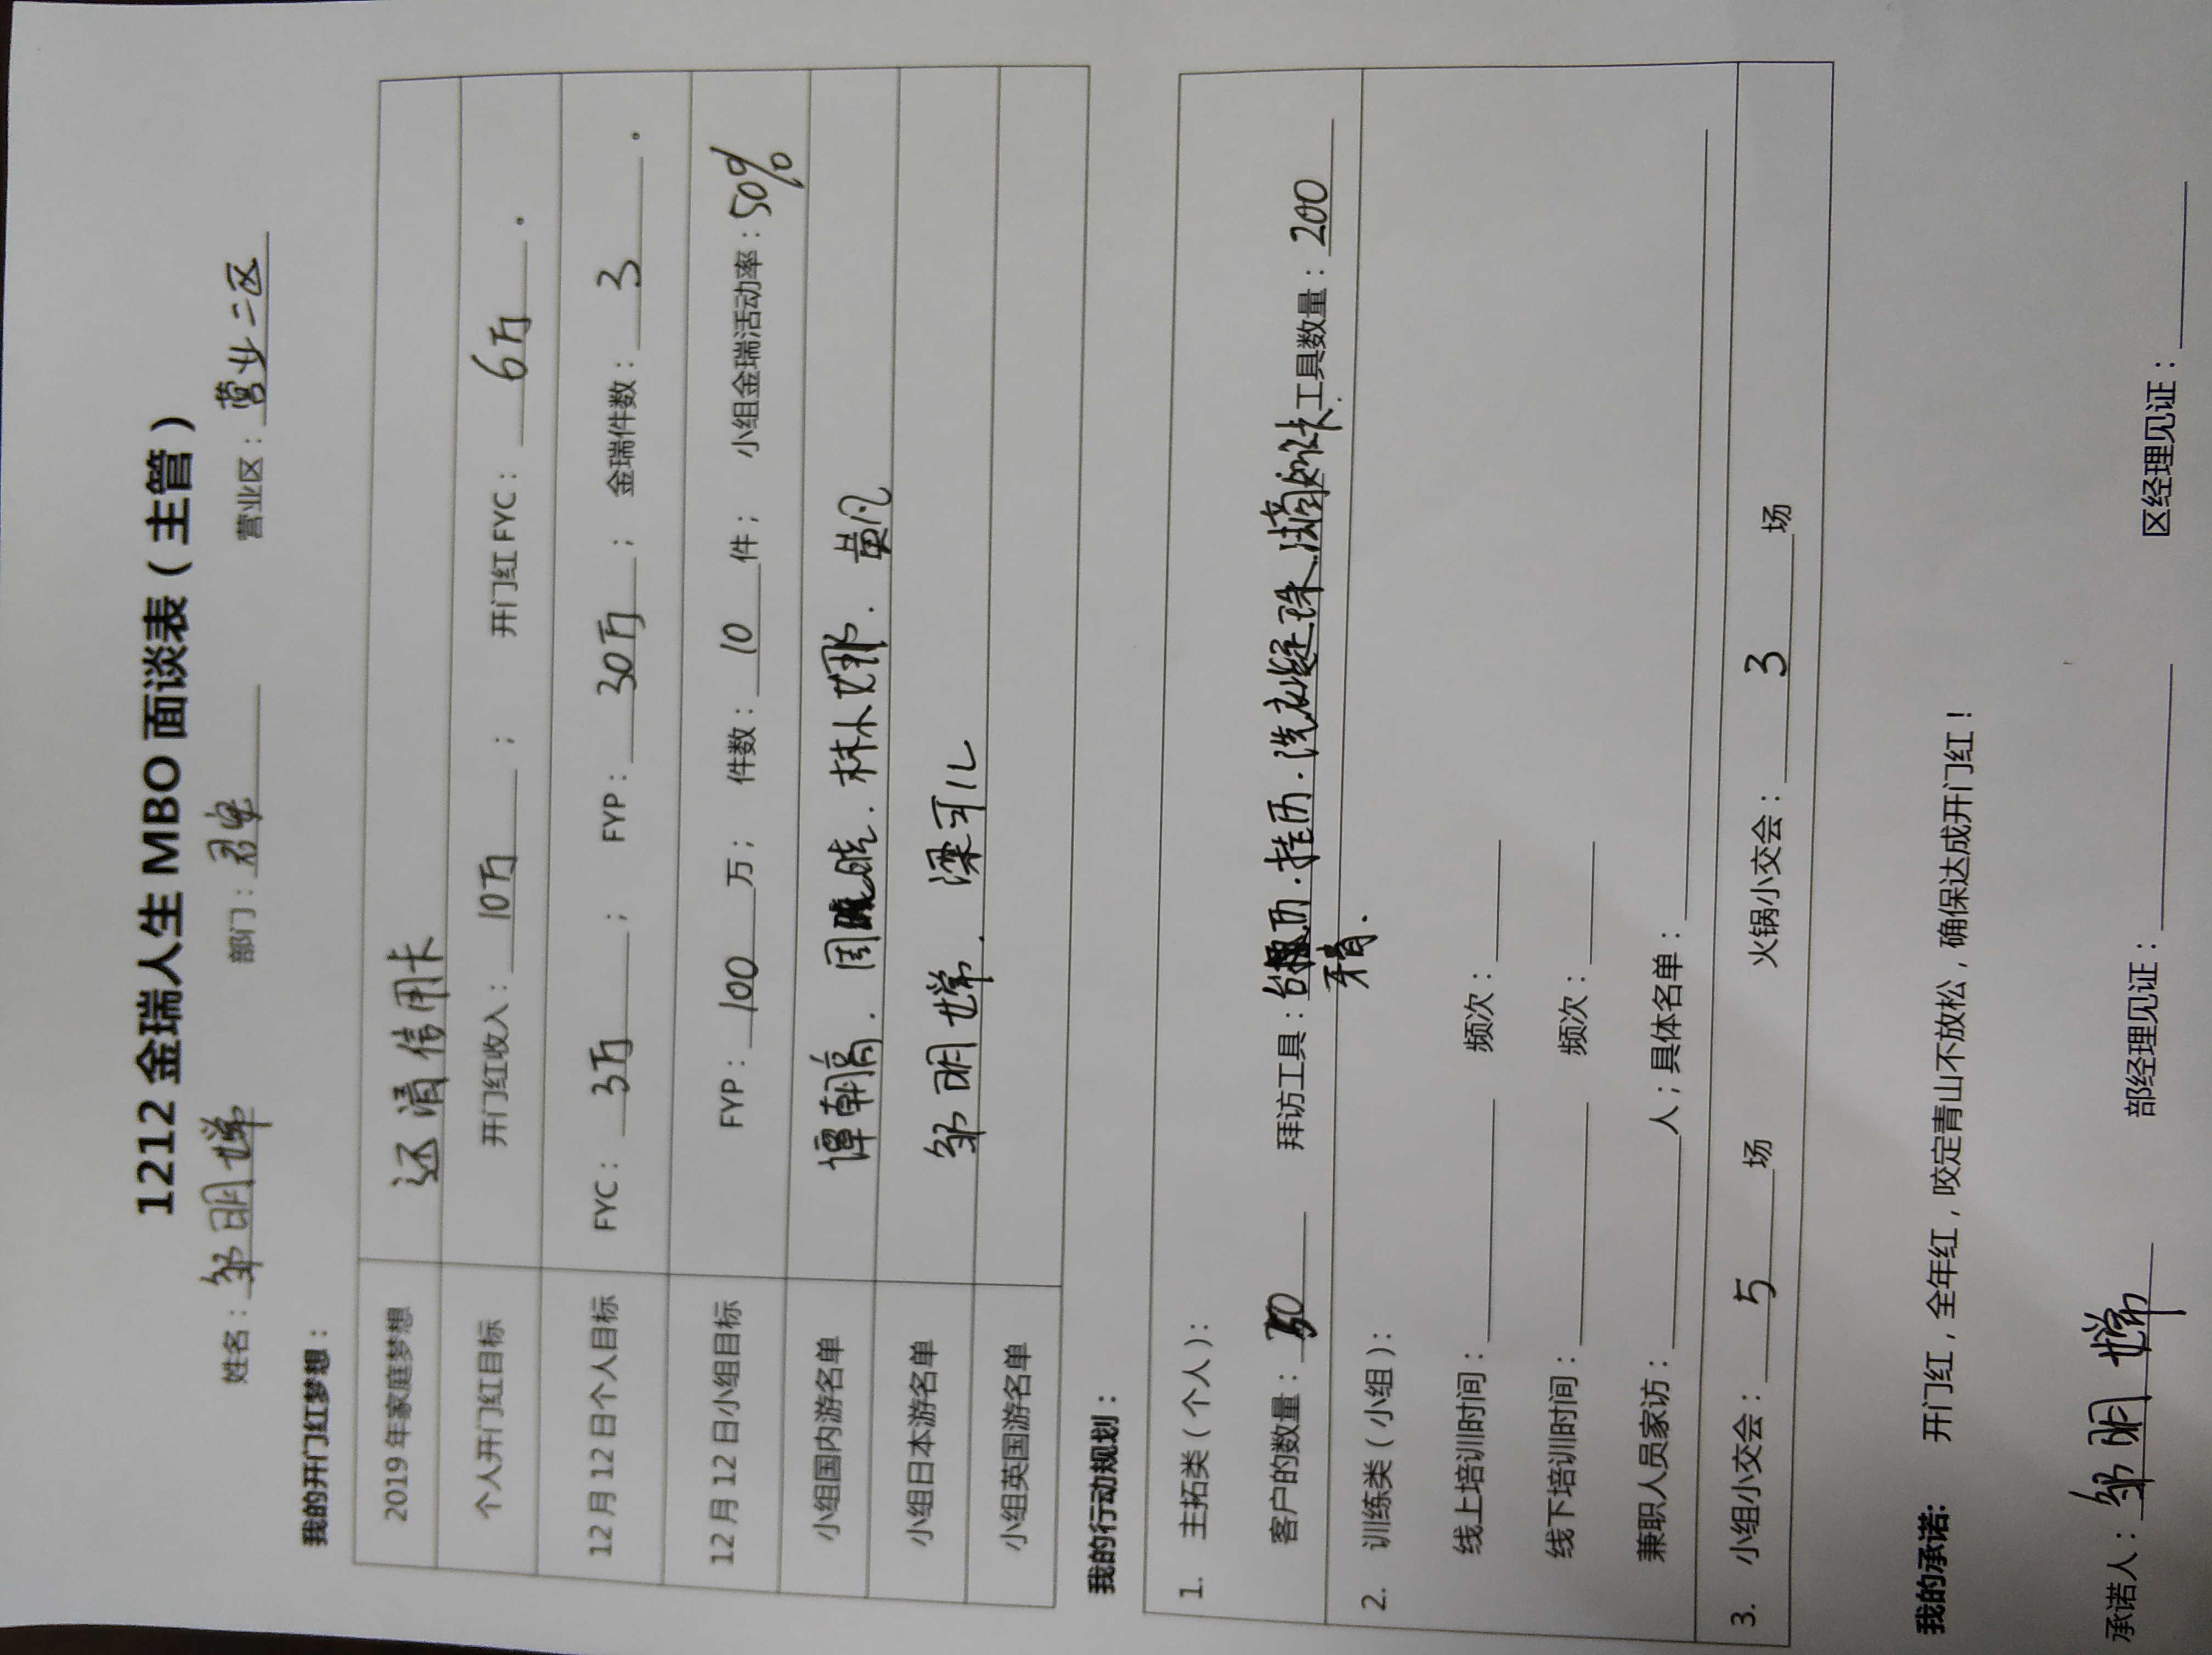 1212 金瑞人生 MBO 面谈表（主管）
姓名：邹明嫦 部门：君安 营业区：营业二区
我的开门红梦想：
2019 年家庭梦想 还清信用卡
个人开门红目标 开门红收入：10万； 开门红 FYC：6万.
12 月 12 日个人目标 FYC：3万； FYP：30万； 金瑞件数：3.
12 月 12 日小组目标 FYP：100万； 件数：10件； 小组金瑞活动率：50%
小组国内游名单 谭朝高. 周晓皖. 林小娜. 黄凡
小组日本游名单 邹明嫦. 梁可儿
小组英国游名单
我的行动规划：
1. 主拓类（个人）：
客户的数量： 拜访工具：台历.挂历.洗衣凝珠.滴卡. 工具数量：200
牙膏.
2. 训练类（小组）：
线上培训时间： 频次：
线下培训时间： 频次：
兼职人员家访：人；具体名单：
3. 小组小交会：5场 火锅小交会：3场
我的承诺: 开门红，全年红，咬定青山不放松，确保达成开门红！
承诺人：邹明嫦 部经理见证： 区经理见证：